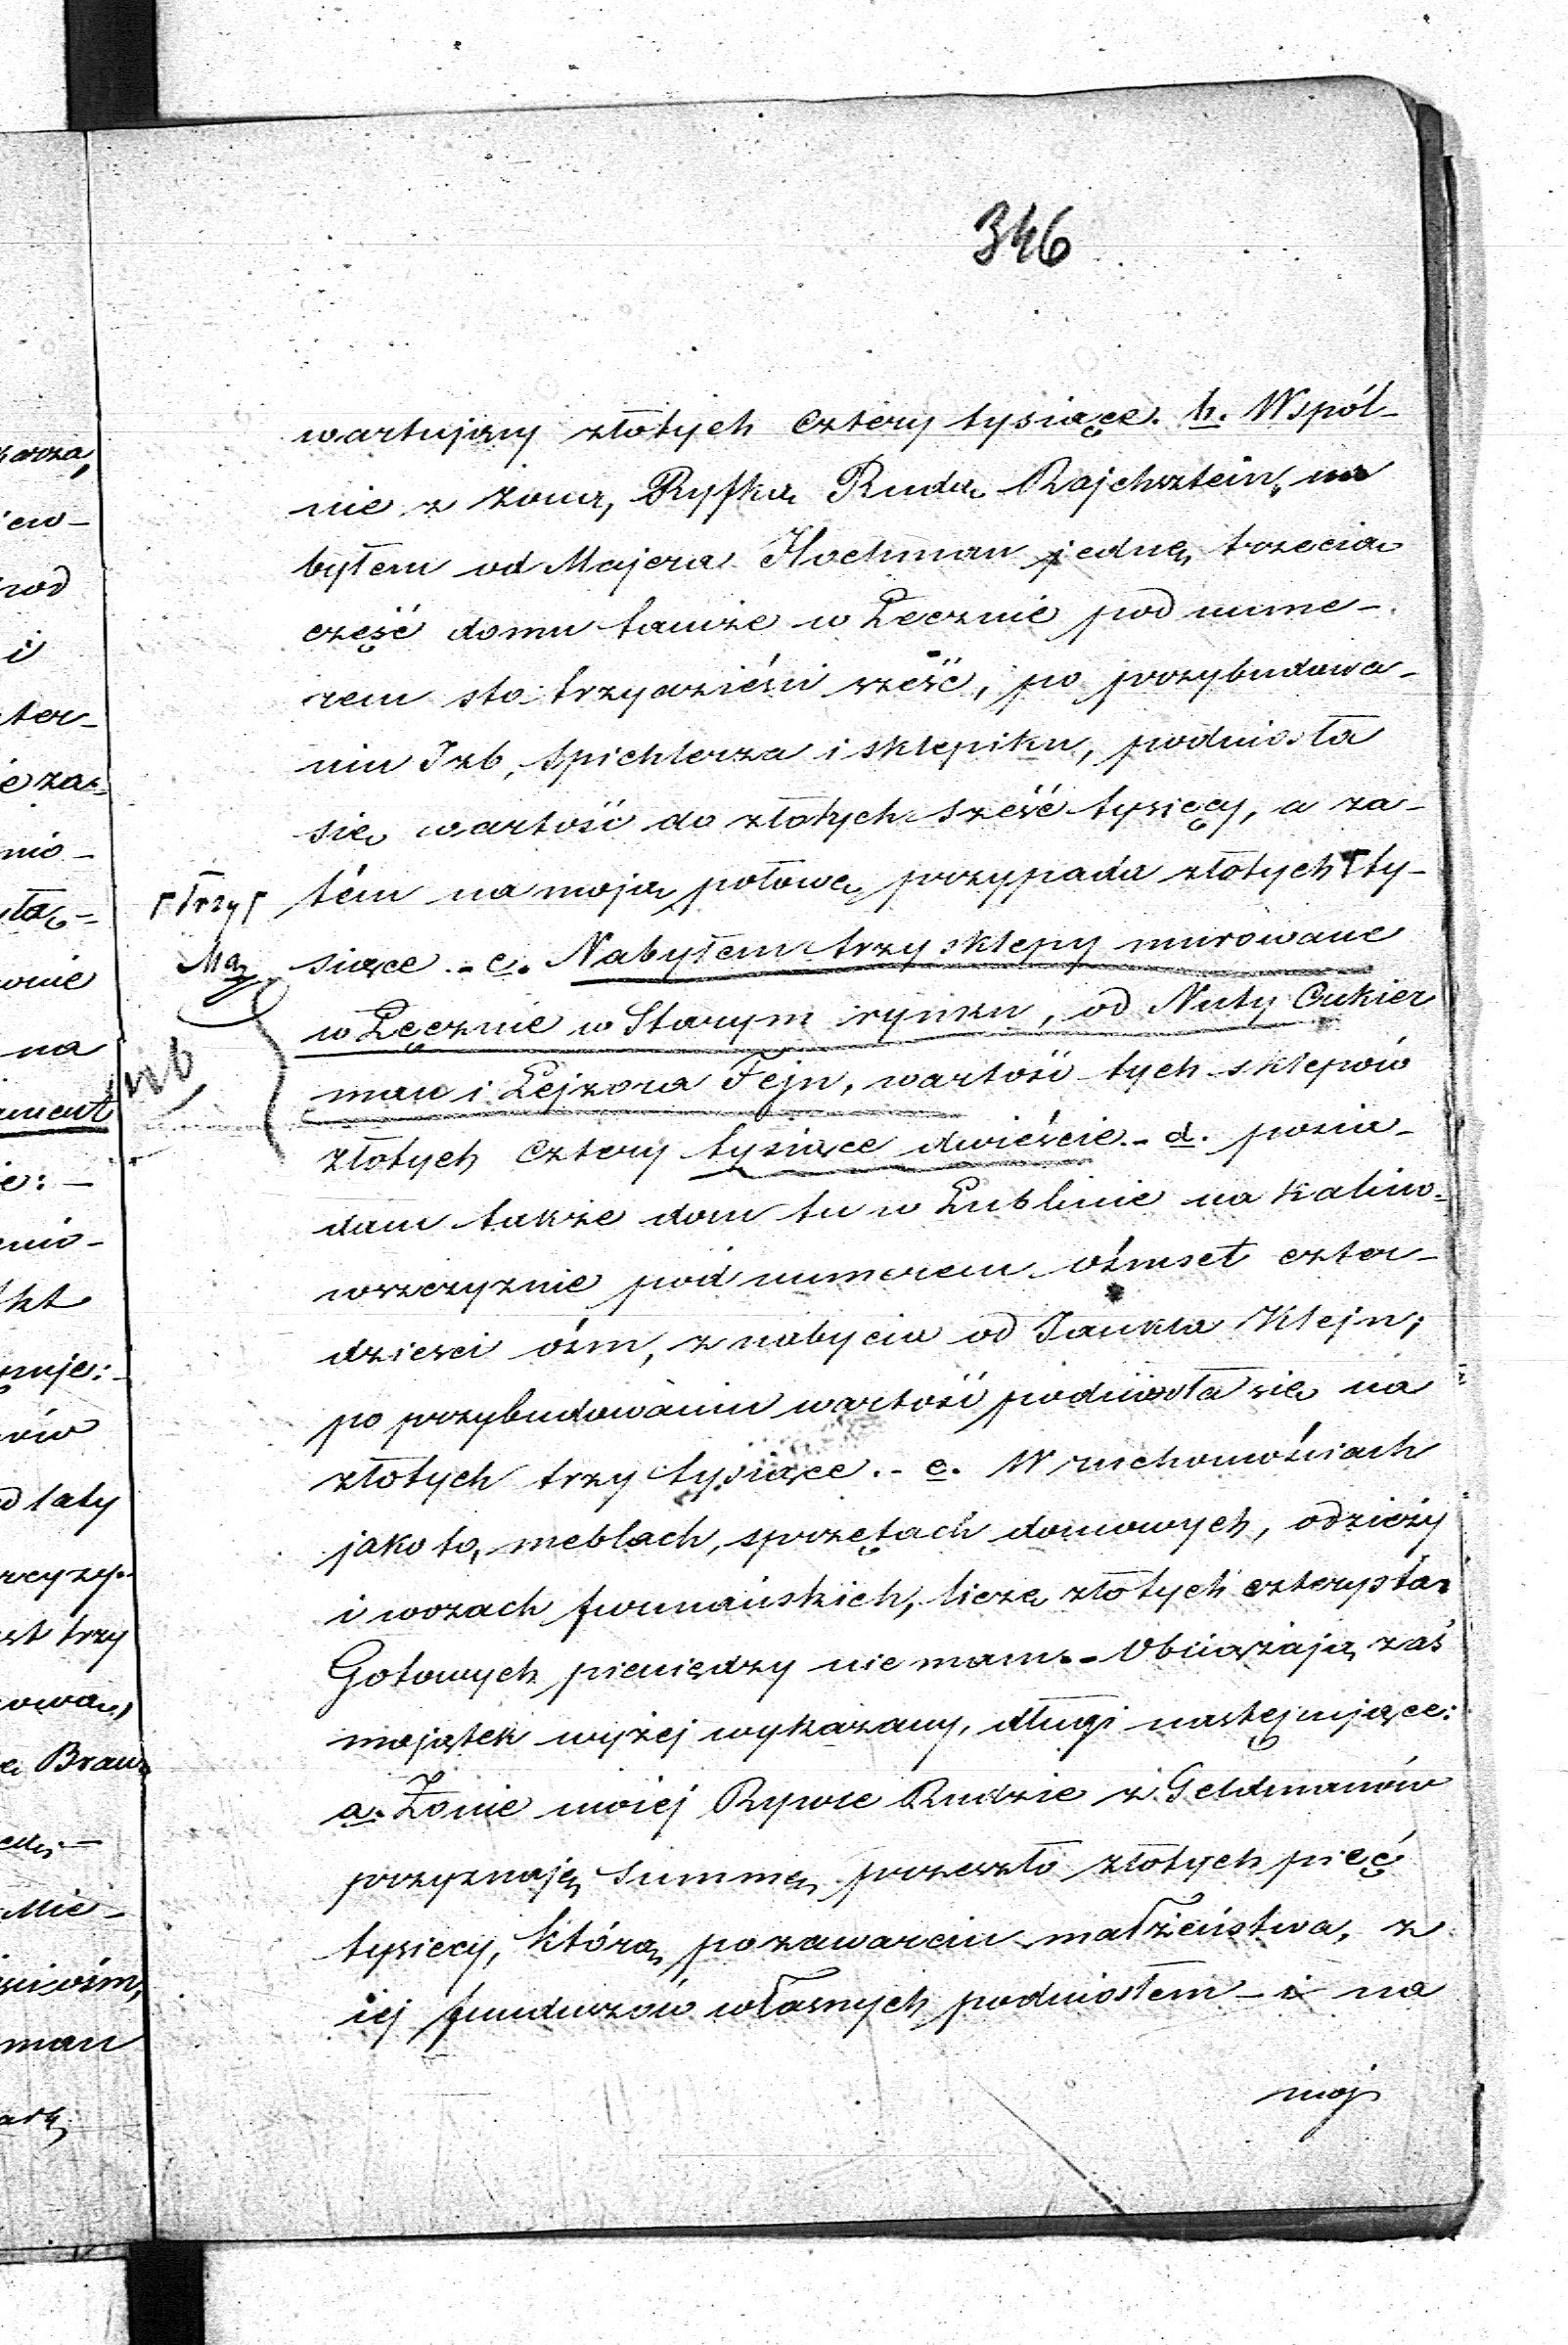 346
wartujący złotych cztery tysiące. b. Wspól-
nie z żoną, Ryfką Rudą Rajchsztein, na
byłem od Majera Hochman jedną trzecią
część domu tamże w Łęcznie pod nume-
rem sto trzydzieści sześć, po przybudowa-
niu Izb, spichlerza i sklepiku, podniosła
się wartość do złotych sześć tysięcy, a za-
tém na moją połowę przypada złotych ┌ ty-
┌ Trzy ┌
siące. - c. Nabyłem trzy sklepy murowane
w Łęcznie w Starym rynku, od Nuty Cukier
nb
man i Lejzora Fejn, wartość tych sklepów
złotych cztery tysiące dwieście. - d. posia-
dam także dom tu w Lublinie na Kalino-
wszczyznie pod numerem ośmset czter-
dzieści ośm, z nabycia od Jankla Klejn;
po przybudowaniu wartość podniosła się na
złotych trzy tysiące. - e. W ruchomościach
jako to, meblach, sprzętach domowych, odzieży
i wozach furmańskich, liczę złotych czterysta.
Gotowych pieniędzy nie mam. - Obciążają zaś
majątek wyżej wykazany, długi następujące:
a. Żonie mojej Rywce Rudzie z Geldmanów
przyznaję summę przeszło złotych pięć
tysięcy, którą po zawarciu małżeństwa, z
jej funduszów własnych podniosłem - i na
moj
arza,
iew-
rod
i
ter-
é za-
nio-
na
ament
ie: -
nio-
kt
muje: -
ów
laty
st trzy
Braw
Mie-
ośm,
man